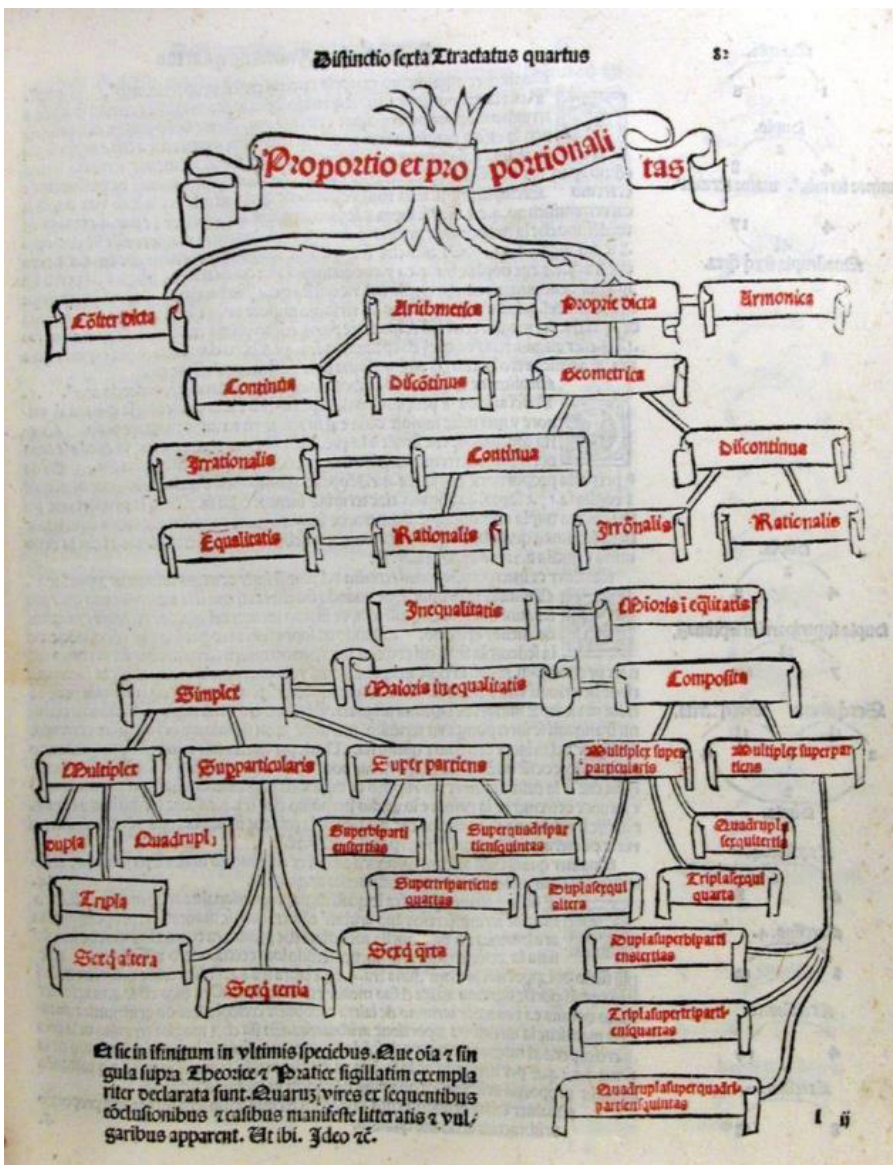 Distinctio sexta Tractatus quartus 82
Proportio et pro portionali tas
Cōiter dicta
Arithmetica
Proprie dicta
Armonica
Continua
Discōtinua
Geometrica
Irrationalis
Continua
Discontinua
Equalitatis
Rationalis
Irrōnalis
Rationalis
Inequalitatis
Mioris ī eq̄litatis
Simplex
Maioris in equalitatis
Composita
Multiplex
Supparticularis
Super partiens
Multiplex super
particularis
Multiplex superpar
tiens
Dupla
Quadrupl
Superbiparti
enstertias
Superquadripar
tiensquintas
Quadrupla
sexquitertia
Tripla
Supertripartiens
quartas
Duplasexqui
altera
Triplasexqui
quarta
Sexq̄ altera
Sexq̄ tertia
Sexq̄ q̄rta
Duplasuperbiparti
enstertias
Triplasupertriparti-
ensquartas
Quadruplasuperquadri-
partiensquintas
Et sic in īfinitum in vltimis speciebus. Que oīa ⁊ sin
gula supra Theorice ⁊ Pratice sigillatim exempla
riter declarata sunt. Quarum vires ex sequentibus
cōclusionibus ⁊ casibus manifeste litteratis ⁊ vul/
garibus apparent. Ut ibi. Ideo ⁊c̄.
l ii